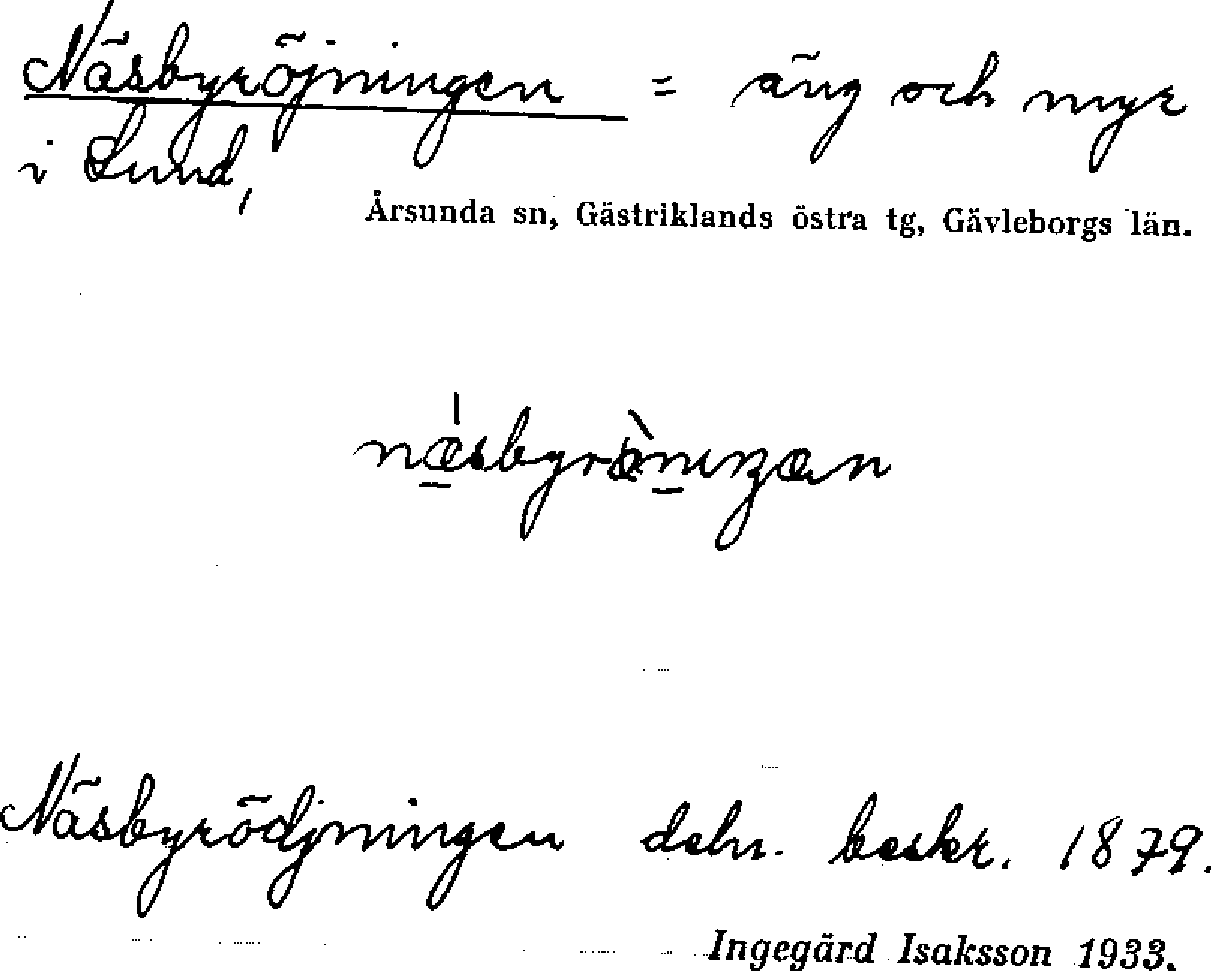 Näsbyröjningen = äng och myr
i Lund,
Årsunda sn, Gästriklands östra tg, Gävleborgs län.
Näsbyrödjningen deln. beskr. 1879.
Ingegärd Isaksson 1933.